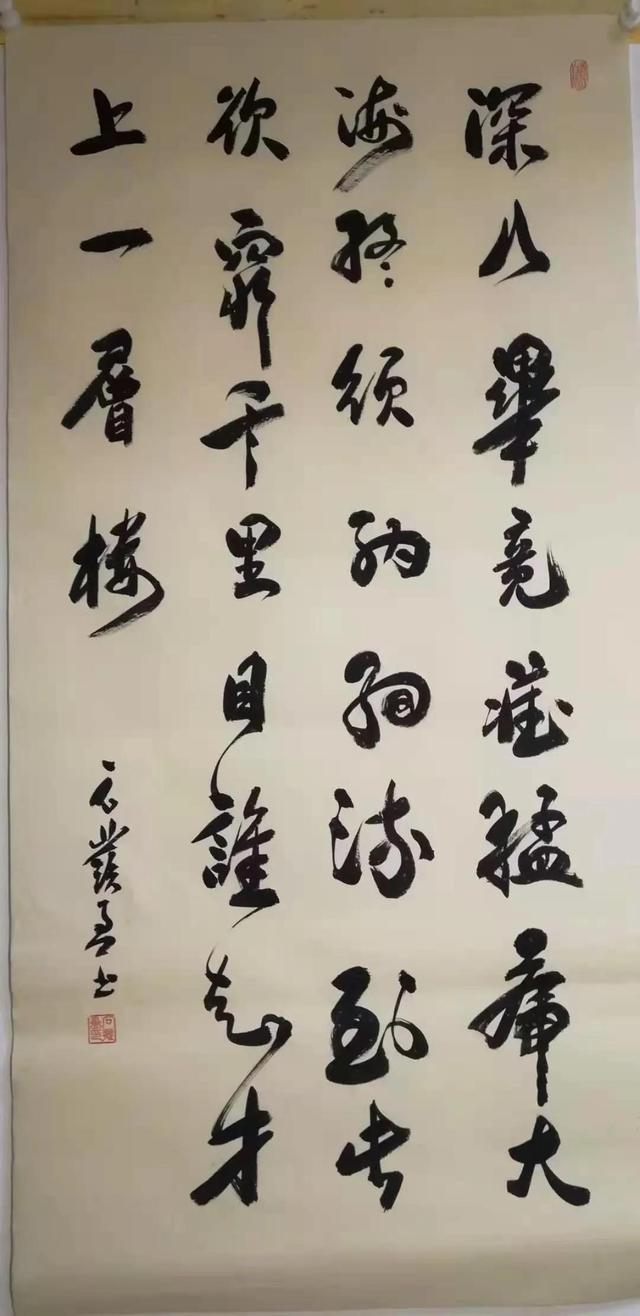 深山畢竟藏猛虎大
海終須納細流到此
欲窮千里目誰知才
上一層樓
石 书